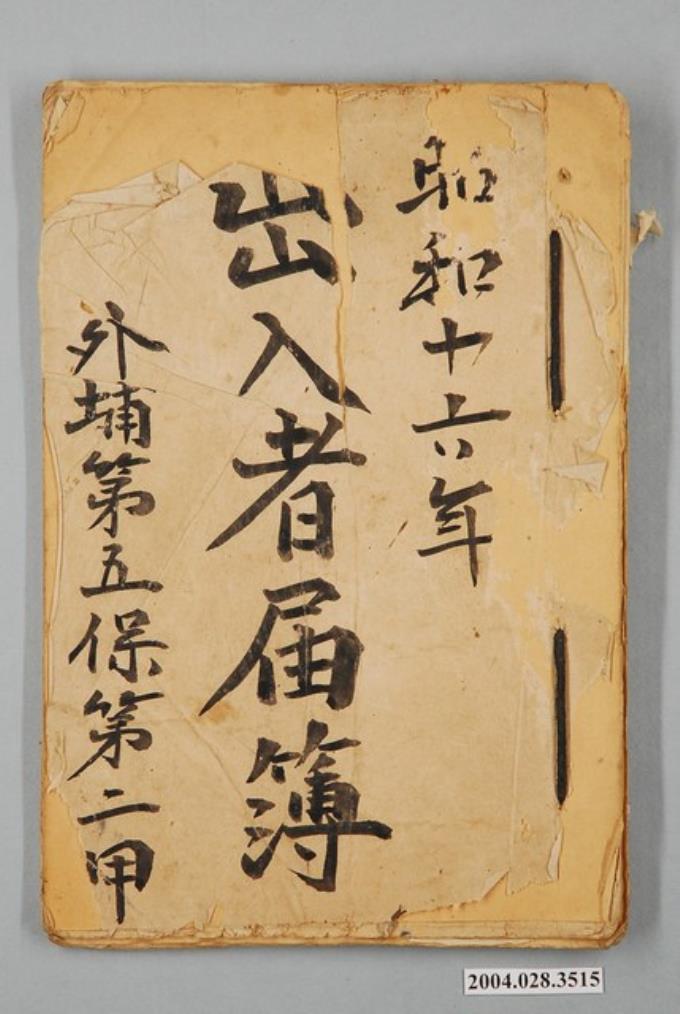 昭和十六年
出入者届簿
外埔第五保第二甲
2004.028.3515